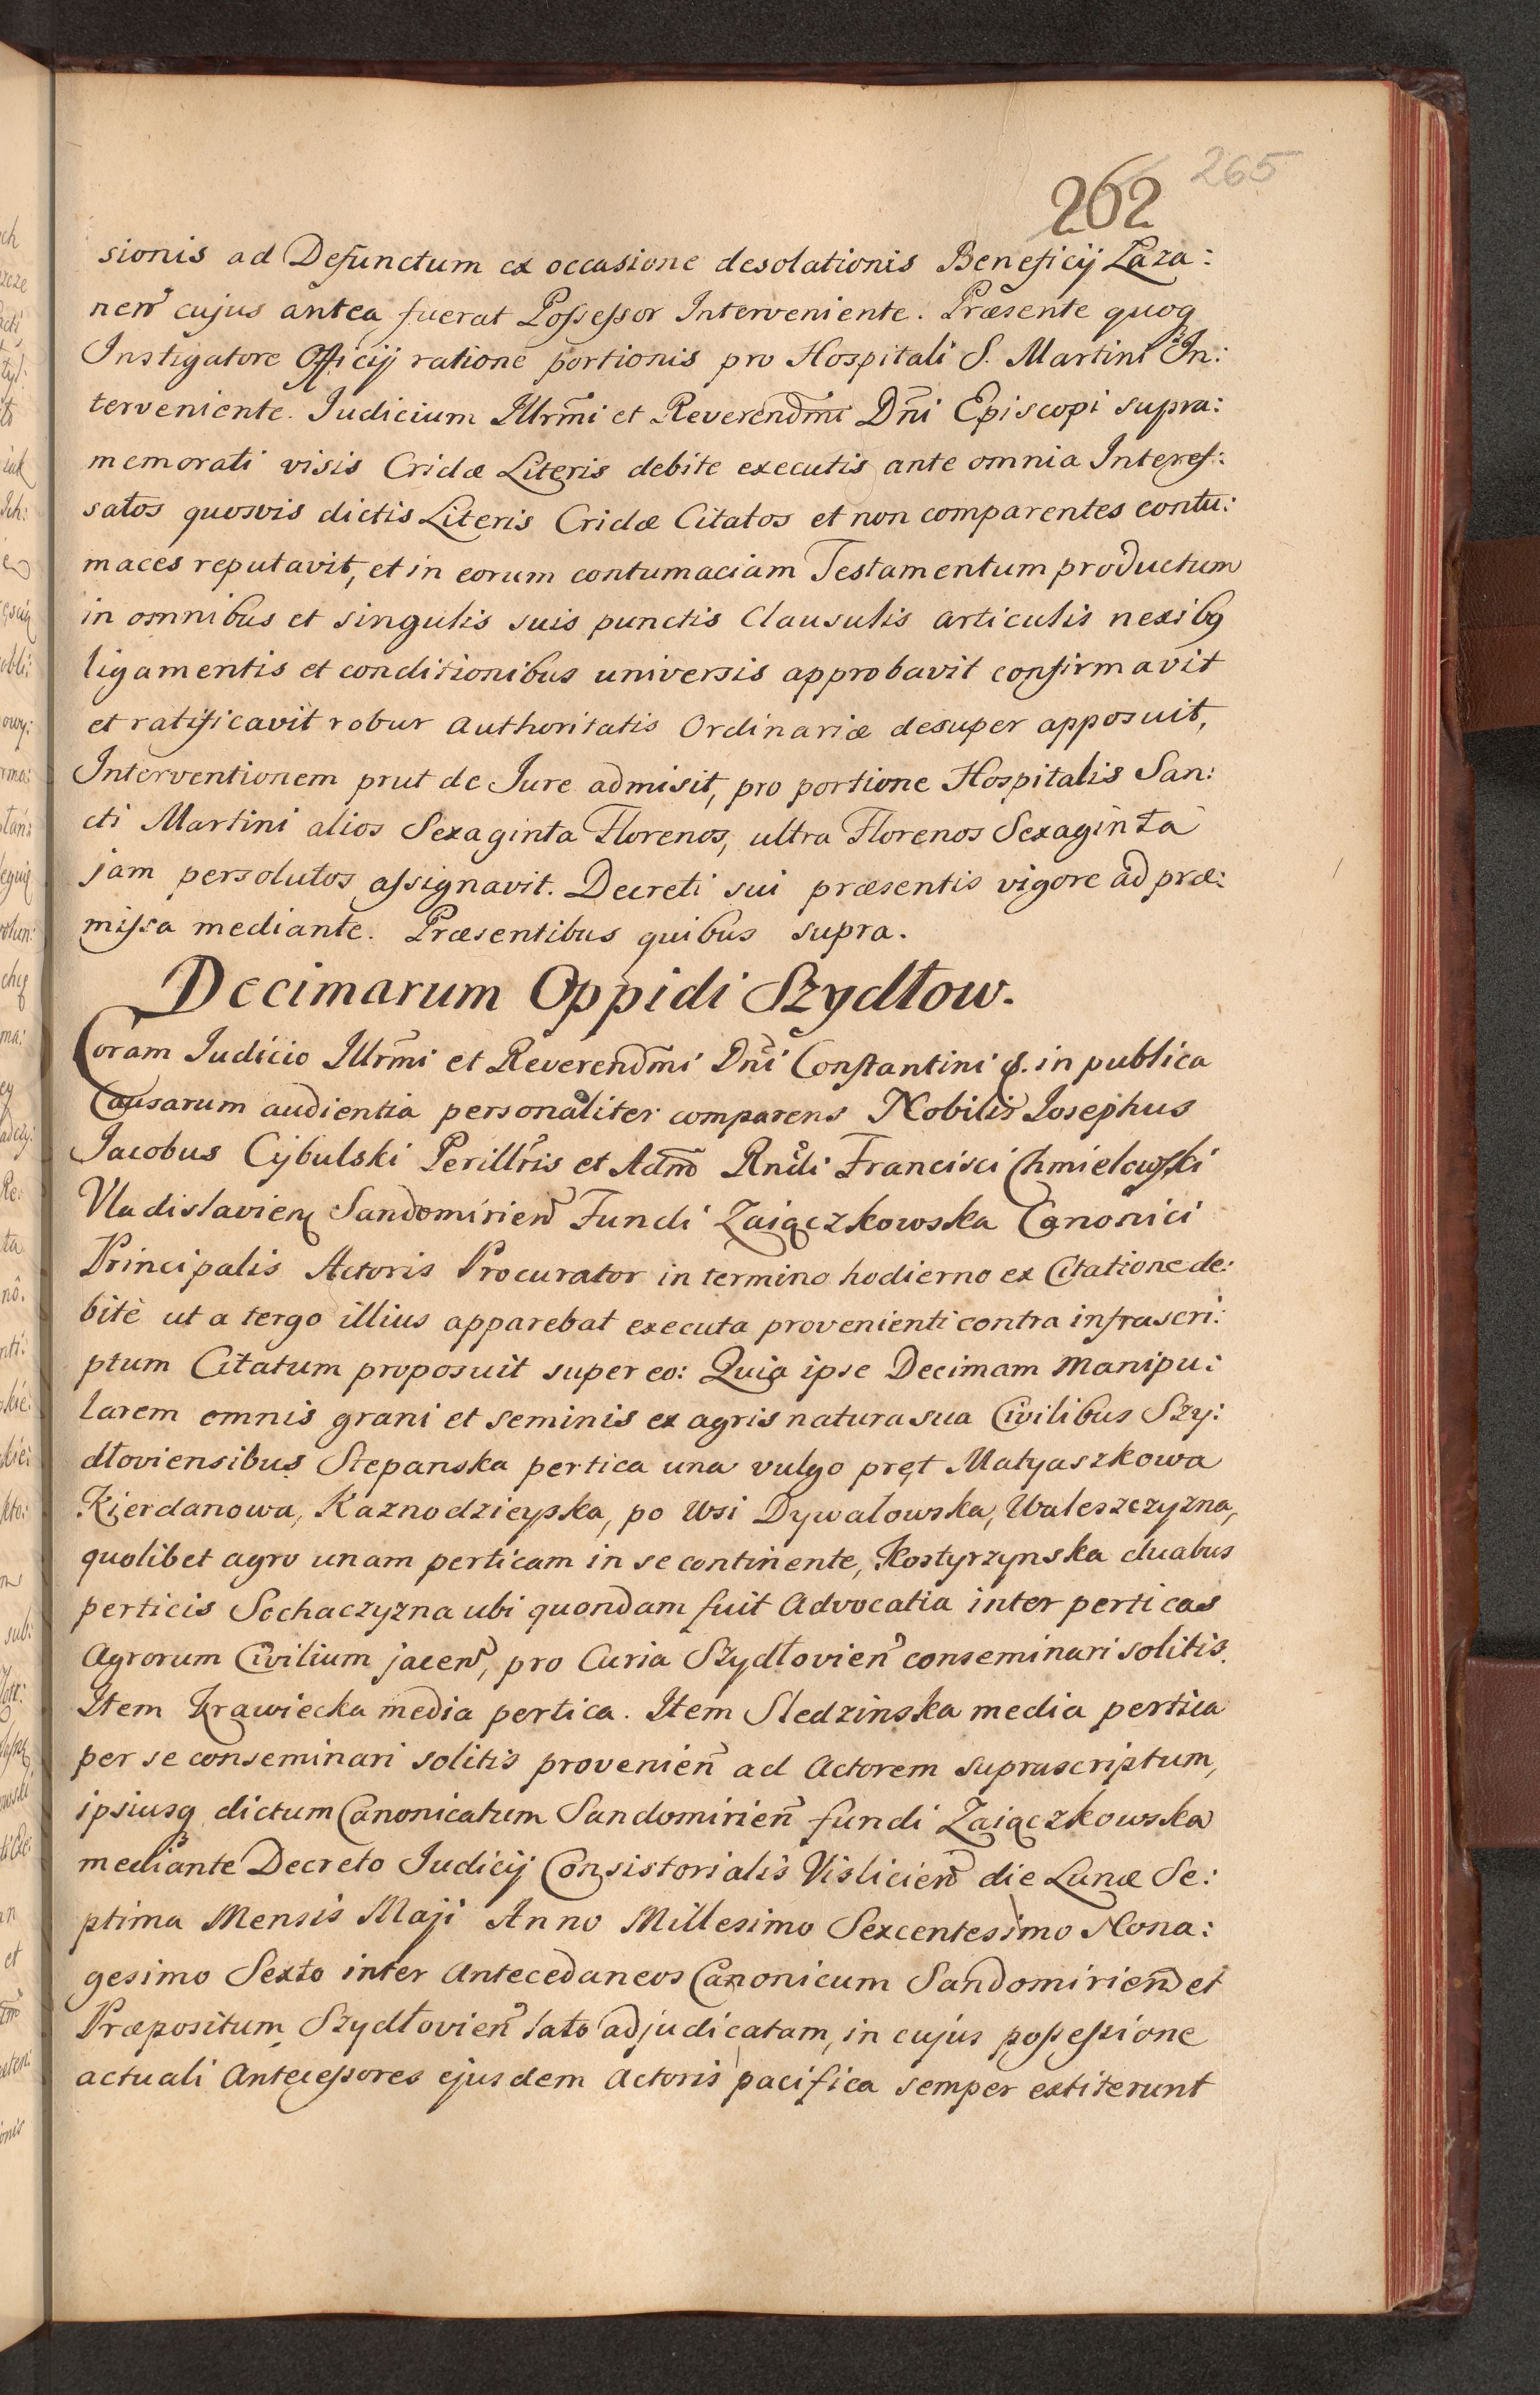 265
262
sionis ad Defunctum ex occasione desolationis Beneficij Laza:
nen̄ cujus antea fuerat Possessor Interveniente. Præsente quoq
Instigatore Officij ratione portionis pro Hospitali S. Martini In:
terveniente. Iudicium Illrm̄i et Reverendm̄i Dn̄i Episcopi supra:
memorati visis Cridæ Literis debite executis ante omnia Interes:
satos quosvis dictis Literis Cridæ Citatos et non comparentes contu:
maces reputavit, et in eorum contumaciam Testamentum productum
in omnibus et singulis suis punctis Clausulis articulis nexibq
ligamentis et conditionibus universis approbavit confirmavit
et ratificavit robur authoritatis Ordinariæ desuper apposuit,
Interventionem prut de Iure admisit, pro portione Hospitalis San:
cti Martini alios Sexaginta Florenos, ultra Florenos Sexaginta
jam persolutos assignavit. Decreti sui præsentis vigore ad præ:
missa mediante. Præsentibus quibus supra.
Decimarum Oppidi Szydłow.
Coram Iudicio Illrm̄i et Reverendm̄i Dn̄i Constantini &. in publica
Causarum audientia personaliter comparens Nobilis Iosephus
Jacobus Cybulski Perillr̄is et Adm̄ Rn̄di Francisci Chmielowski
Vladislavien Sandomirien̄ Fundi Zaiączkowska Canonici
Principalis Actoris Procurator in termino hodierno ex Citatione de:
bitè ut a tergo illius apparebat executa provenienti contra infrascri:
ptum Citatum proposuit super eo: Quia ipse Decimam manipu:
larem omnis grani et seminis ex agris natura sua Civilibus Szy:
dłoviensibus Stepanska pertica una vulgo pręt Matyaszkowa
Kierdanowa, Kaznodzieyska, po Wsi Dywałowska, Waleszczyzna,
quolibet agro unam perticam in se continente, Kostyrzynska duabus
perticis Sochaczyzna ubi quondam fuit Advocatia inter perticas
Agrorum Civilium jacen̄, pro Curia Szydłovien̄ conseminari solitis.
Item Krawiecka media pertica. Item Sledzinska media pertica
per se conseminari solitis provenien̄ ad Actorem suprascriptum,
ipsiusq dictum Canonicatum Sandomirien̄ fundi Zaiączkowska
mediante Decreto Iudicij Consistorialis Vislicien̄ die Lunæ Se:
ptima Mensis Maji Anno Millesimo Sexcentesimo Nona:
gesimo Sexto inter Antecedaneos Canonicum Sandomirien̄ et
Præpositum Szydłovien̄ lato adjudicatam, in cujus possessione
actuali Antecessores ejusdem Actoris pacifica semper extiterunt